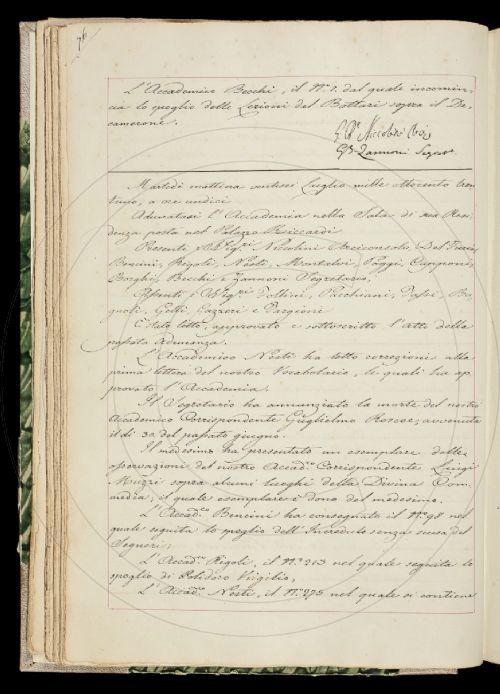 76
L'Accademico Becchi, il N.º 1. dal quale incomin-
cia lo spoglio delle Lezioni del Bottari sopra il De-
camerone.
G. B. Niccolini Arcic.
G. B. Zannoni Segret.
Martedì mattina ventisei Luglio mille ottocento tren-
tuno, a ore undici
Adunatasi l'Accademia nella Sala di sua Resi-
denza posta nel Palazzo Riccardi
Presenti i SS.ri Niccolini Arciconsolo, Del Furia
Bencini, Rigoli, Nesti, Montalvi, Poggi, Capponi,
Borghi, Becchi e Zannoni Segretario,
Assenti i SS.ri Follini, Pacchiani, Tassi, Ba-
gnoli, Gelli, Gazzeri e Targioni
È stato letto, approvato e sottoscritto l'atto della
passata Adunanza.
L'Accademico Nesti ha letto correzioni alla
prima lettera del nostro Vocabolario, le quali ha ap-
provato l'Accademia.
Il Segretario ha annunziato la morte del nostro
Accademico Corrispondente Guglielmo Roscoe, avvenuta
il dì 30 del passato giugno.
Il medesimo ha presentato un esemplare delle
osservazioni del nostro Accad.co Corrispondente Luigi
Muzzi sopra alcuni luoghi della Divina Com-
media, il quale esemplare è dono del medesimo.
L'Accad.co Bencini ha consegnata il N.º 98 nel
quale seguita lo spoglio dell'Incredulo senza scusa del
Segneri;
L'Accad.co Rigoli, il N.º 263 nel quale seguita lo
spoglio di Polidoro Virgilio,
L'Accad.co Nesti, il N.º 275 nel quale si contiene